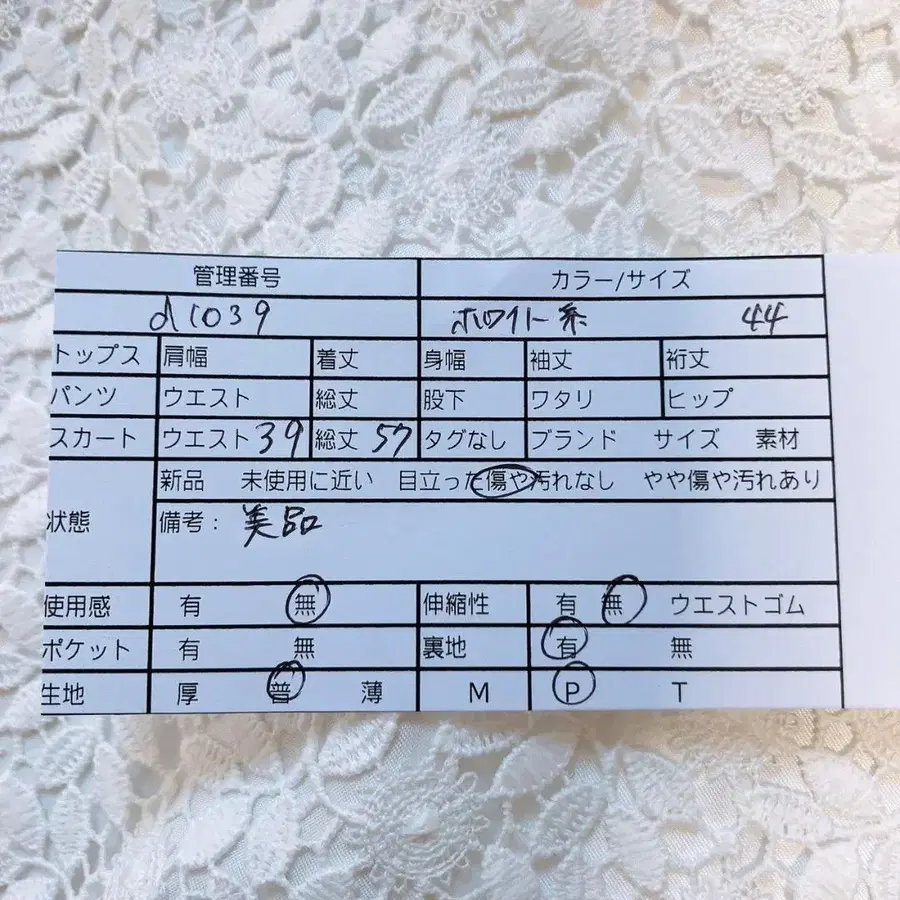 管理番号 カラー/サイズ
d1039 ホワイト系 44
トップス 肩幅 着丈 身幅 袖丈 裄丈
パンツ ウエスト 総丈 股下 ワタリ ヒップ
スカート ウエスト 39 総丈 57 タグなし ブランド サイズ 素材
新品 未使用に近い 目立った傷や汚れなし やや傷や汚れあり
状態 備考: 美品
使用感 有 無 伸縮性 有 無 ウエストゴム
ポケット 有 無 裏地 有 無
生地 厚 普 薄 M P T